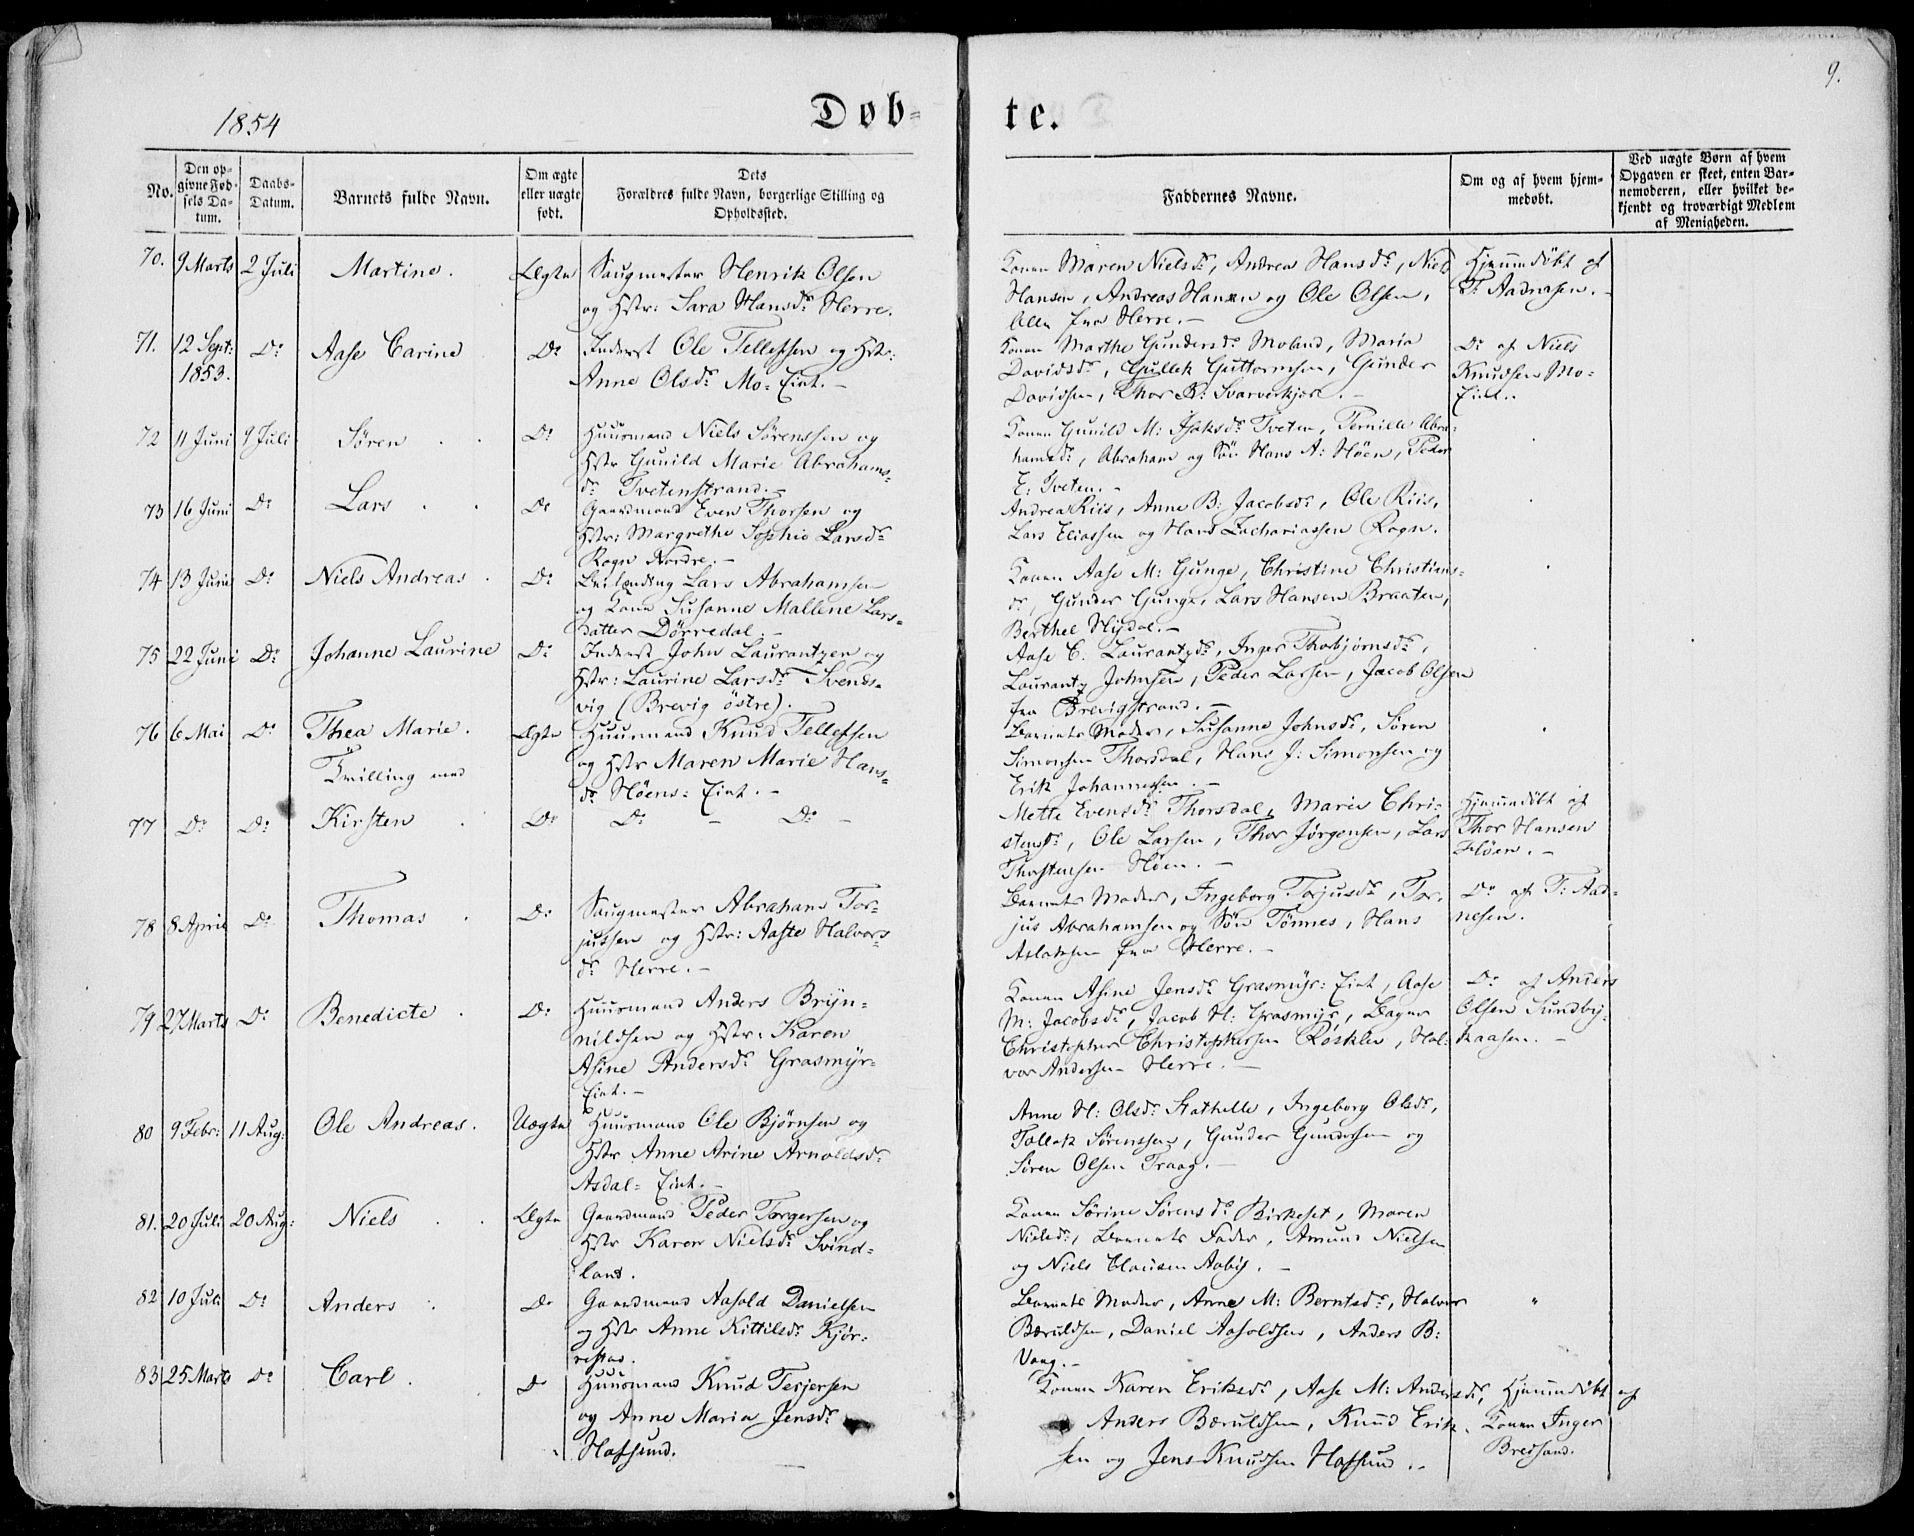 9.
1854
Døb-
te.
No.
Den op-
givne Fød-
sels Da-
tum.
Daabs-
Datum.
Barnets fulde Navn.
Om ægte
eller uægte
født.
Dets
Forældres fulde Navn, borgerlige Stilling og
Opholdssted.
Faddernes Navne.
Om og af hvem hjem-
medøbt.
Ved uægte Børn af hvem
Opgaven er skeet, enten Bar-
nemoderen, eller hvilket be-
kjendt og troværdigt Medlem
af Menigheden.
70. 9 Marts 2 Juli Martine. Ægte Saugmester Henrik Olsen
og Hstr: Sara Hansdr Herre.
Konen Maren Nielsdr, Andrea Hansdr, Niels
Hansen, Andreas Hansen og Ole Olsen,
Alle fra Herre. —
Hjemmedøbt af
T. Aadnesen. —
71. 12 Sept: Do Aase Carine Do Inderst Ole Tellefsen og Hstr:
1853.
Anne Olsdr Mo-Eiet. —
Konen Marthe Gundersdr Moland, Maria
Davidsdr, Gullek Guttormsen, Gunder
Davidsen, Thor K: Svarverkjær. —
Do af Niels
Knudsen Mo-
Eiet.
72 11 Juni 9 Juli Søren Do Huusmand Niels Sørenssen og
Hstr Gunild Marie Abrahams-
dr Tvetenstrand. —
Konen Gunild M: Isaksdr Tveten, Pernille Abra-
hamsdr, Abraham og Søn Hans A: Høen, Peder
E: Tveten. —
73 16 Juni Do Lars Do Gaardmand Even Thorsen og
Hstr: Margrethe Sophie Larsdr
Rogn Nordre. —
Andrea Riis, Anne B: Jacobsdr, Ole Riis,
Lars Eliassen og Hans Zachariassen Rogn.
74 13 Juni Do Niels Andreas Do Leilænding Lars Abrahamsen
og Kone Susanne Mallene Lars-
datter Dørredal. —
Konen Aase M: Gunge, Christine Christians-
dr, Gunder Gunge, Lars Hansen Braaten,
Berthel Nydal. —
75 22 Juni Do Johanne Laurine Do Inderst John Laurantzen og
Hstr: Laurine Larsdr Svends-
vig (Brevig østre).
Aase C. Laurantzdr, Inger Thorbjørnsdr,
Laurantz Johnsen, Peder Larsen, Jacob Olsen
fra Brevigstrand. —
76 6 Mai Do Thea Marie. Ægte Huusmand Knud Tellefsen
Tvilling med
og Hstr Maren Marie Hans-
dr Høens-Eiet. —
Barnets Moder, Susanne Johnsdr, Søren
Simonsen Thorsdal, Hans J: Simonsen og
Erik Johannessen. —
77 Do Do Kirsten Do Do — Do —
Mette Evensdr Thorsdal, Maren Chri-
stensdr, Ole Larsen, Thor Jørgensen, Lars
Thorstensen Høen. —
Hjemmedøbt af
Thor Hansen
Høen. —
78 8 April Do Thomas Do Saugmester Abraham Tor-
jussen og Hstr: Aaste Halvors-
dr Herre. —
Barnets Moder, Ingeborg Torjusdr, Tor-
jus Abrahamsen og Søn Tønnes, Hans
Aslaksen fra Herre. —
Do af T: Aad-
nesen.
79 27 Marts Do Benedicte Do Huusmand Anders Bryn-
nildsen og Hstr: Karen
Asine Andersdr Grasmyr-
Eiet. —
Konen Asine Jensdr Grasmyr-Eiet, Aase
M: Jacobsdr, Jacob H: Grasmyr, Bager
Christopher Christophersen Røsklev, Hal-
vor Andersen Herre. —
Do af Anders
Olsen Sundby-
kaasen. —
80 9 Febr: 11 Aug: Ole Andreas. Uægte Huusmand Ole Bjørnsen og
Hstr Anne Arine Arnoldsdr
Asdal-Eiet. —
Anne H: Olsdr Stathelle, Ingeborg Olsdr,
Tollek Sørenssen, Gunder Gundersen og
Søren Olsen Traag. —
81. 20 Juli 20 Aug: Niels Ægte Gaardmand Peder Torgersen og
Hstr Karen Nielsdr Svind-
land.
Konen Sørine Sørensdr Birkeset, Maren
Nielsdr, Barnets Fader, Amund Nielsen
og Niels Clausen Aaby. —
82 10 Juli Do Anders Do Gaardmand Aasold Danielsen
og Hstr Anne Kittilsdr Kjør-
restad.
Barnets Moder, Anne M: Berntsdr, Halvor
Bæruldsen, Daniel Aasoldsen, Anders B:
Vaag. —
"
83 25 Marts Do Carl. Do Huusmand Knud Terjersen
og Anne Maria Jensdr
Hafsund.
Konen Karen Eriksdr, Aase M: Andersdr,
Anders Bæruldsen, Knud Erik-
sen og Jens Knudsen Hafsund.
Hjemmedøbt af
Konen Inger
Bredsand.